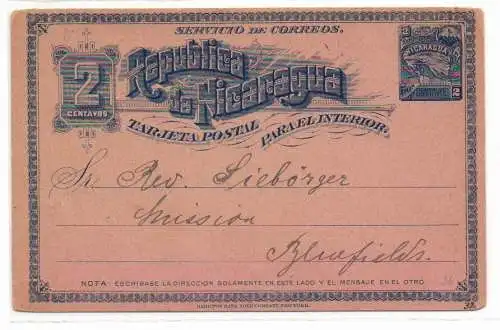 SERVICIO DE CORREOS.
2
CENTAVOS
Republica
de Nicaragua
TARJETA POSTAL PARA EL INTERIOR.
2 NICARAGUA
2
Sr. Rev. Siebörger
Mission
Bluefields.
NOTA- ESCRIBASE LA DIRECCION SOLAMENTE EN ESTE LADO Y EL MENSAJE EN EL OTRO.
HAMILTON BANK NOTE COMPANY, NEW YORK.